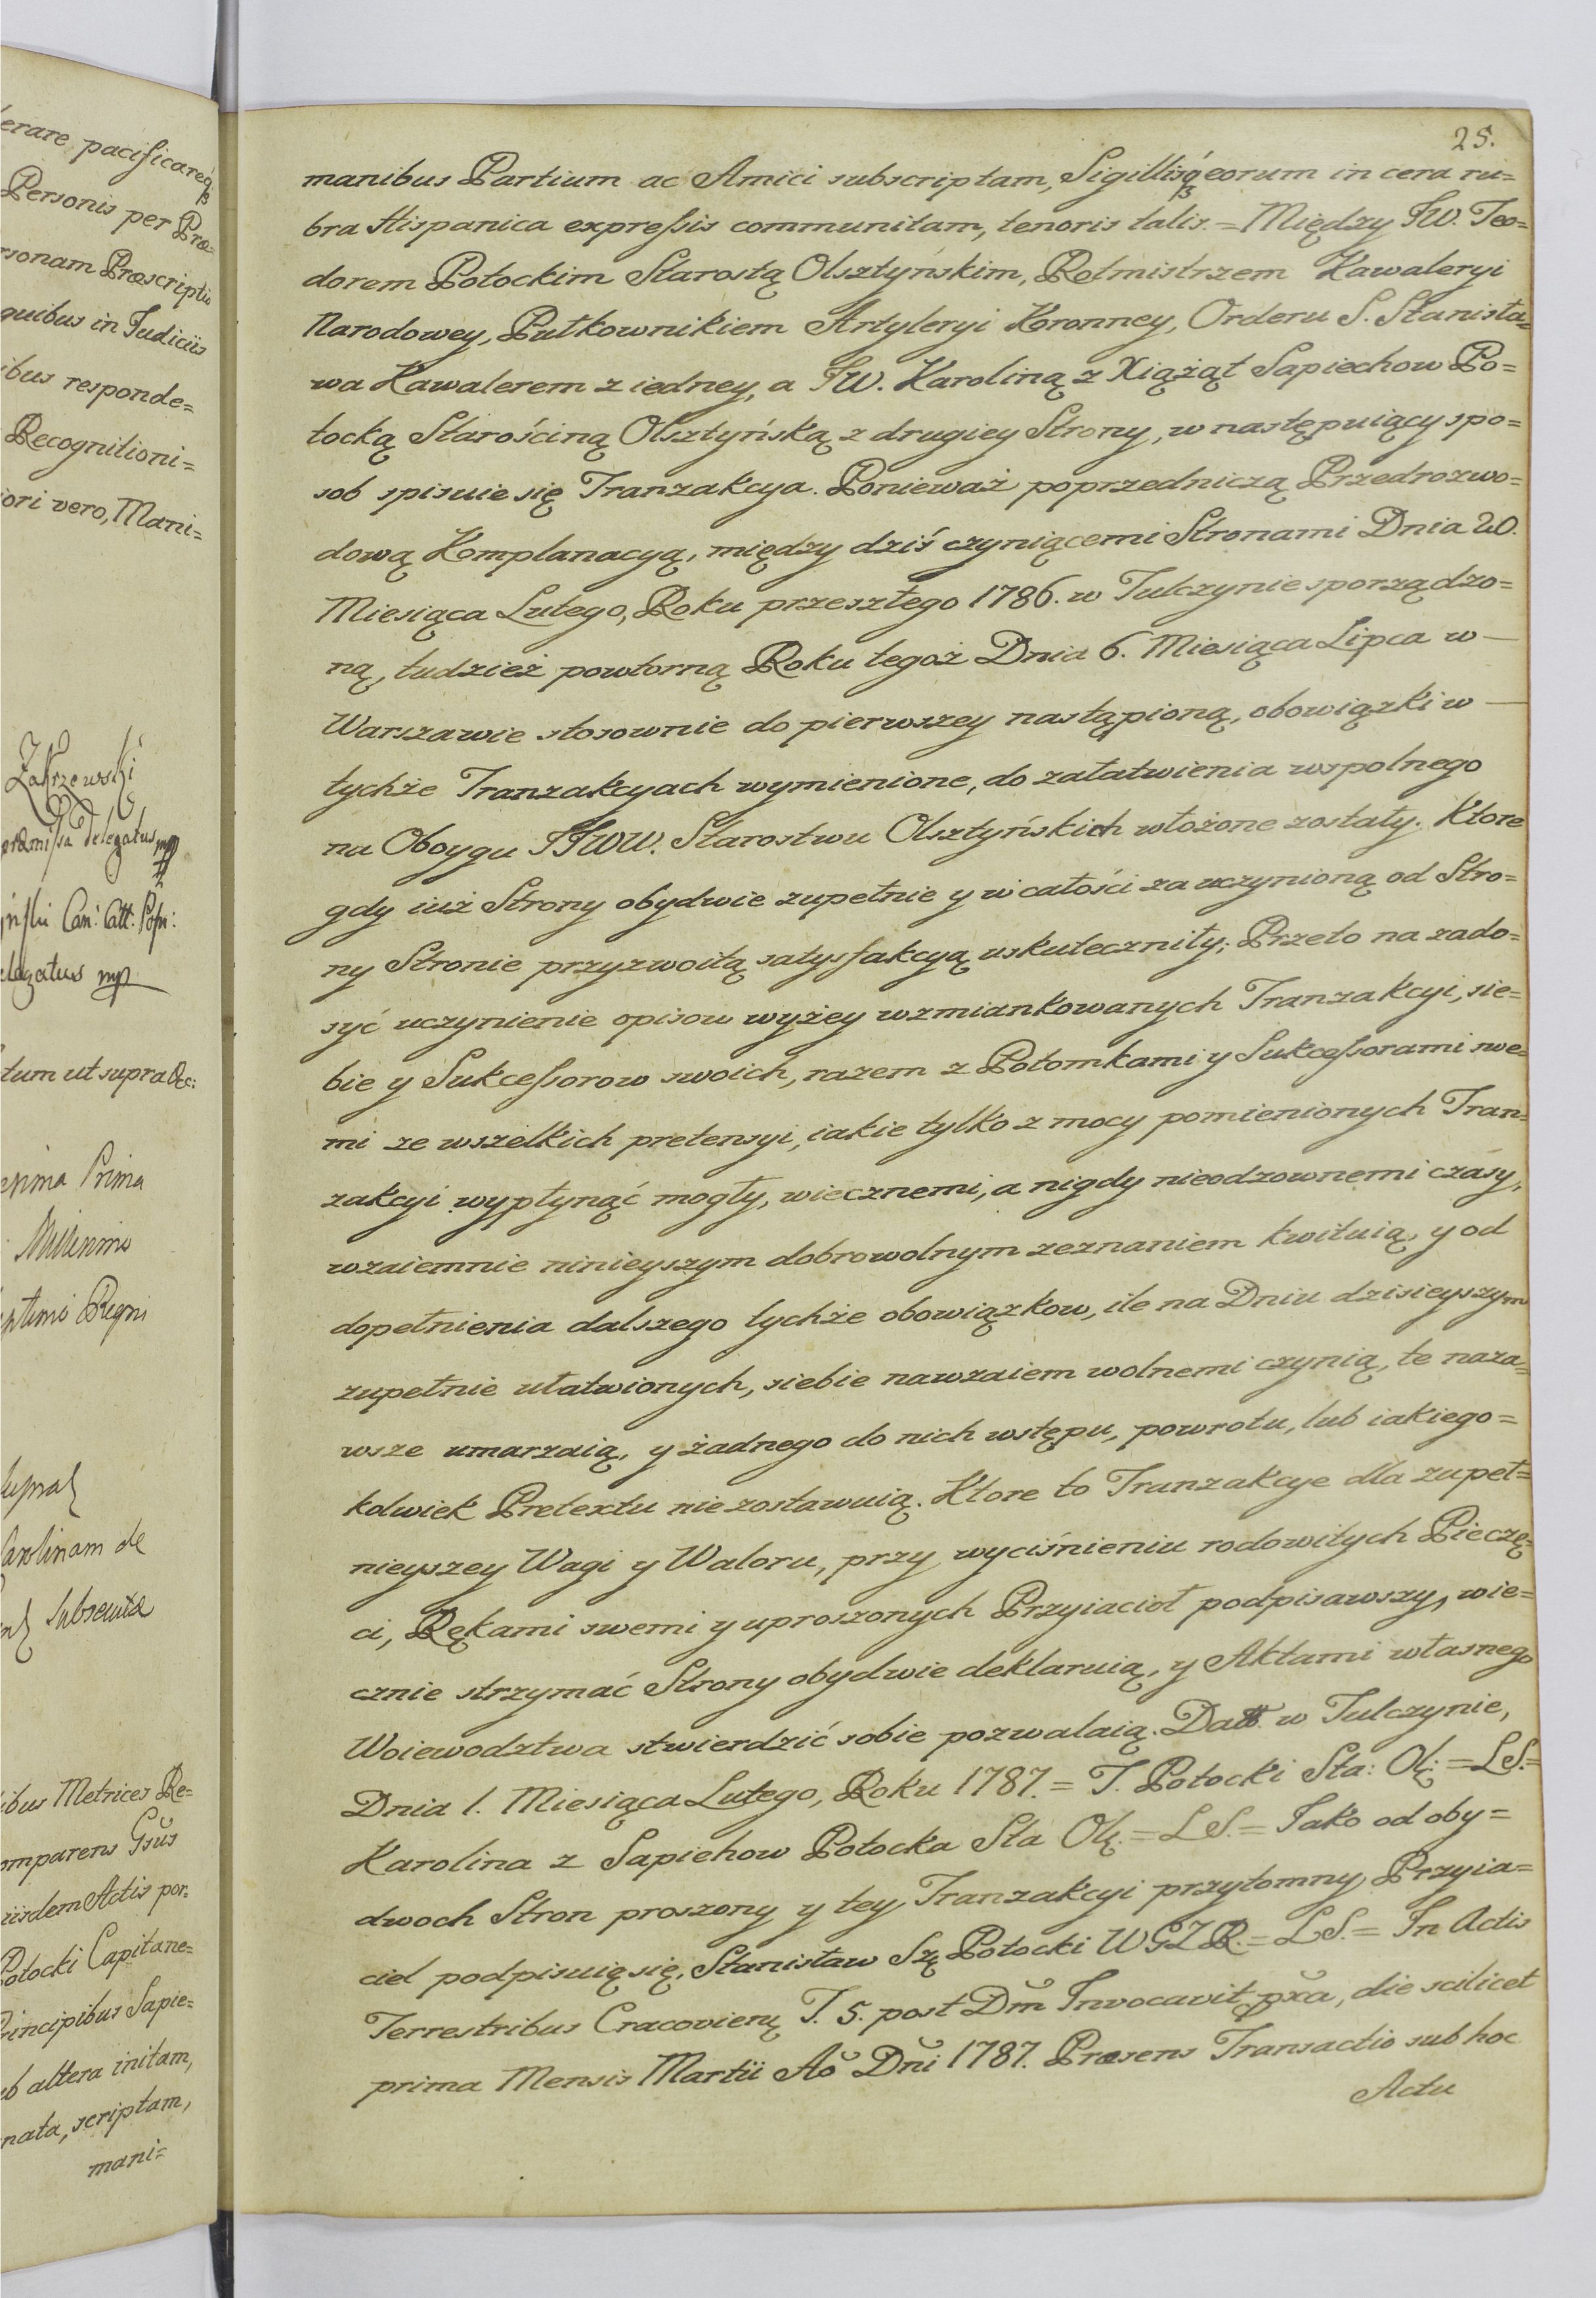 erare pacificareq́ꝫ
Personis per Præ=
rsonam Præscriptis
quibus in Judiciis
ibus responde=
Recognitioni=
iori vero, Mani=
Zakrzewski
præmissa Delegatus mp
Can: Catt: Posn:
elegatus mp
tum ut supra &c:
Prima
Regni
Carolinam de
ibus Metrices Re=
omparens Gsŭs
iisdem Actis por=
Potocki Capitane=
Principibus Sapie=
ab altera initam,
nata, scriptam,
mani=
25.
manibus Partium ac Amici subscriptam, Sigillisq́ꝫ eorum in cera ru=
bra Hispanica expressis communitam, tenoris talis. = Między JW. Teo=
dorem Potockim Starostą Olsztyńskim, Rotmistrzem Kawaleryi
Narodowey, Pułkownikiem Artyleryi Koronney, Orderu S. Stanisła=
wa Kawalerem z iedney, a JW. Karoliną z Xiążąt Sapiechow Po=
tocką Starościną Olsztyńską z drugiey Strony, w następuiący spo=
sob spisuie się Tranzakcya. Ponieważ poprzedniczą Przedrozwo=
dową Komplanacyą, między dziś czyniącemi Stronami Dnia 20.
Miesiąca Lutego, Roku przeszłego 1786. w Tulczynie sporządzo=
ną, tudzież powtorną Roku tegoż Dnia 6. Miesiąca Lipca w —
Warszawie stosownie do pierwszey nastąpioną, obowiązki w —
tychże Tranzakcyach wymienione, do załatwienia wspolnego
na Oboygu JJWW. Starostwu Olsztyńskich włożone zostały. Ktore
gdy iuż Strony obydwie zupełnie y w całości za uczynioną od Stro=
ny Stronie przyzwoitą satysfakcyą uskuteczniły; Przeto na zado=
syć uczynienie opisow wyżey wzmiankowanych Tranzakcyi, sie=
bie y Sukcessorow swoich, razem z Potomkami y Sukcessorami swe=
mi ze wszelkich pretensyi, iakie tylko z mocy pomienionych Tran=
zakcyi wypłynąć mogły, wiecznemi, a nigdy nieodzownemi czasy,
wzaiemnie ninieyszym dobrowolnym zeznaniem kwituią, y od
dopełnienia dalszego tychże obowiązkow, ile na Dniu dzisieyszym
zupełnie ułatwionych, siebie nawzaiem wolnemi czynią, te naza=
wsze umarzaią, y żadnego do nich wstępu, powrotu, lub iakiego=
kolwiek Pretextu nie zostawuią. Ktore to Tranzakcye dla zupeł=
nieyszey Wagi y Waloru, przy wyciśnieniu rodowitych Pieczę=
ci, Rękami swemi y uproszonych Przyiacioł podpisawszy, wie=
cznie strzymać Strony obydwie deklaruią, y Aktami własnego
Woiewodztwa stwierdzić sobie pozwalaią. Datt. w Tulczynie,
Dnia 1. Miesiąca Lutego, Roku 1787. = T. Potocki Sta: Ol: = LS. =
Karolina z Sapiehow Potocka Sta Olę. = LS. = Jako od oby=
dwoch Stron proszony y tey Tranzakcyi przytomny Przyia=
ciel podpisuię się, Stanisław Szę Potocki WGZR. = LS. = In Actis
Terrestribus Cracovienę. F. 5. post Dm̆ Invocavit pxa, die scilicet
prima Mensis Martii Aŏ Dn̆i 1787. Præsens Transactio sub hoc
Actu